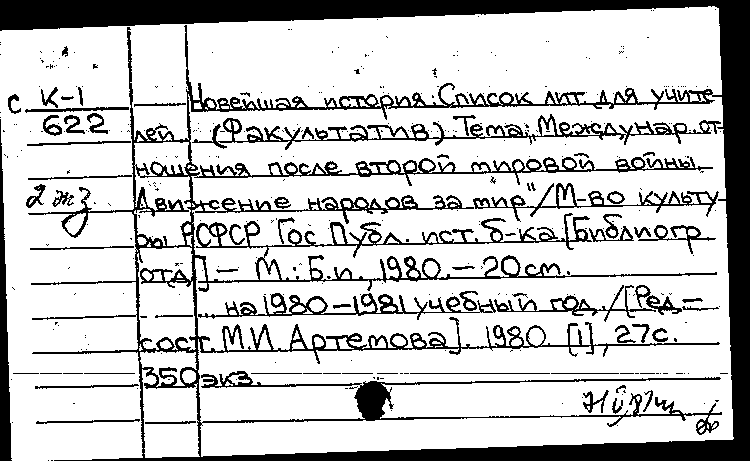 с К-1
622
2 экз
Новейшая история: Список лит. для учите-
лей. (Факультатив). Тема: "Междунар. от-
ношения после второй мировой войны.
Движение народов за мир"/М-во культу-
ры РСФСР, Гос. Публ. ист. б-ка. [Библиогр.
отд.]. – М.: Б.и., 1980. – 20 см.
... на 1980–1981 учебный год. /[Ред.-
сост. М.И. Артемова]. 1980. [1], 27с.
350 экз.